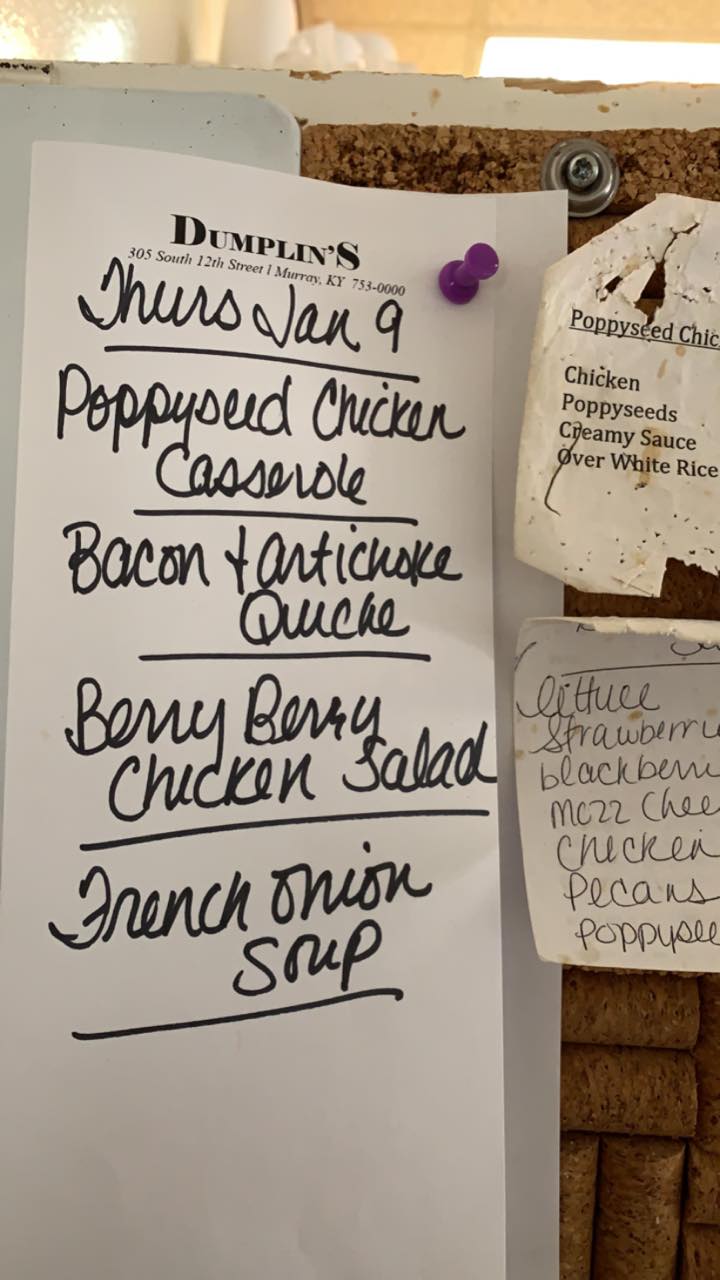 DUMPLIN'S
305 South 12th Street | Murray, KY 753-0000
Thurs Jan 9
Poppyseed Chicken
Casserole
Bacon + Artichoke
Quiche
Berry Berry
Chicken Salad
French Onion
Soup
Poppyseed Chic
Chicken
Poppyseeds
Creamy Sauce
Over White Rice
lettuce
Strawberri
blackberri
Mozz Chee
Chicken
Pecans
Poppysee